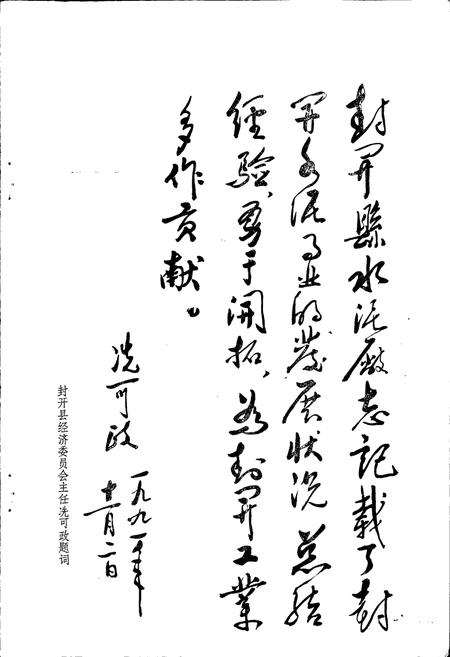 封开縣水泥廠志記載了封
开水泥事业的發展状况总结
經驗,勇于開拓,為封開工業
多作贡献。
冼可政
一九九一年
十一月二日
封开县经济委员会主任冼可政题词